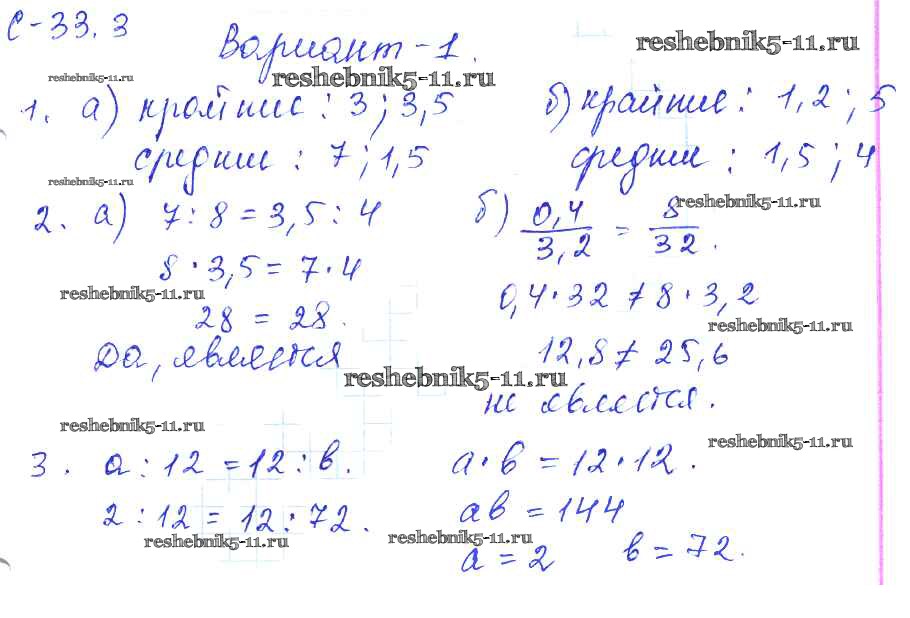 С-33.3
Вариант-1.
reshebnik5-11.ru
reshebnik5-11.ru
reshebnik5-11.ru
1. а) крайние : 3 ; 3,5
средние : 7 ; 1,5
б) крайние : 1,2 ; 5
средние : 1,5 ; 4
reshebnik5-11.ru
reshebnik5-11.ru
2. а) 7 : 8 = 3,5 : 4
8 · 3,5 = 7 · 4
reshebnik5-11.ru
28 = 28.
Да, является
б) 0,4/3,2 = 8/32.
0,4 · 32 ≠ 8 · 3,2
reshebnik5-11.ru
12,8 ≠ 25,6
не является.
reshebnik5-11.ru
reshebnik5-11.ru
reshebnik5-11.ru
3. а : 12 = 12 : в.
2 : 12 = 12 : 72.
reshebnik5-11.ru
а · в = 12 · 12.
ав = 144
reshebnik5-11.ru
а = 2 в = 72.